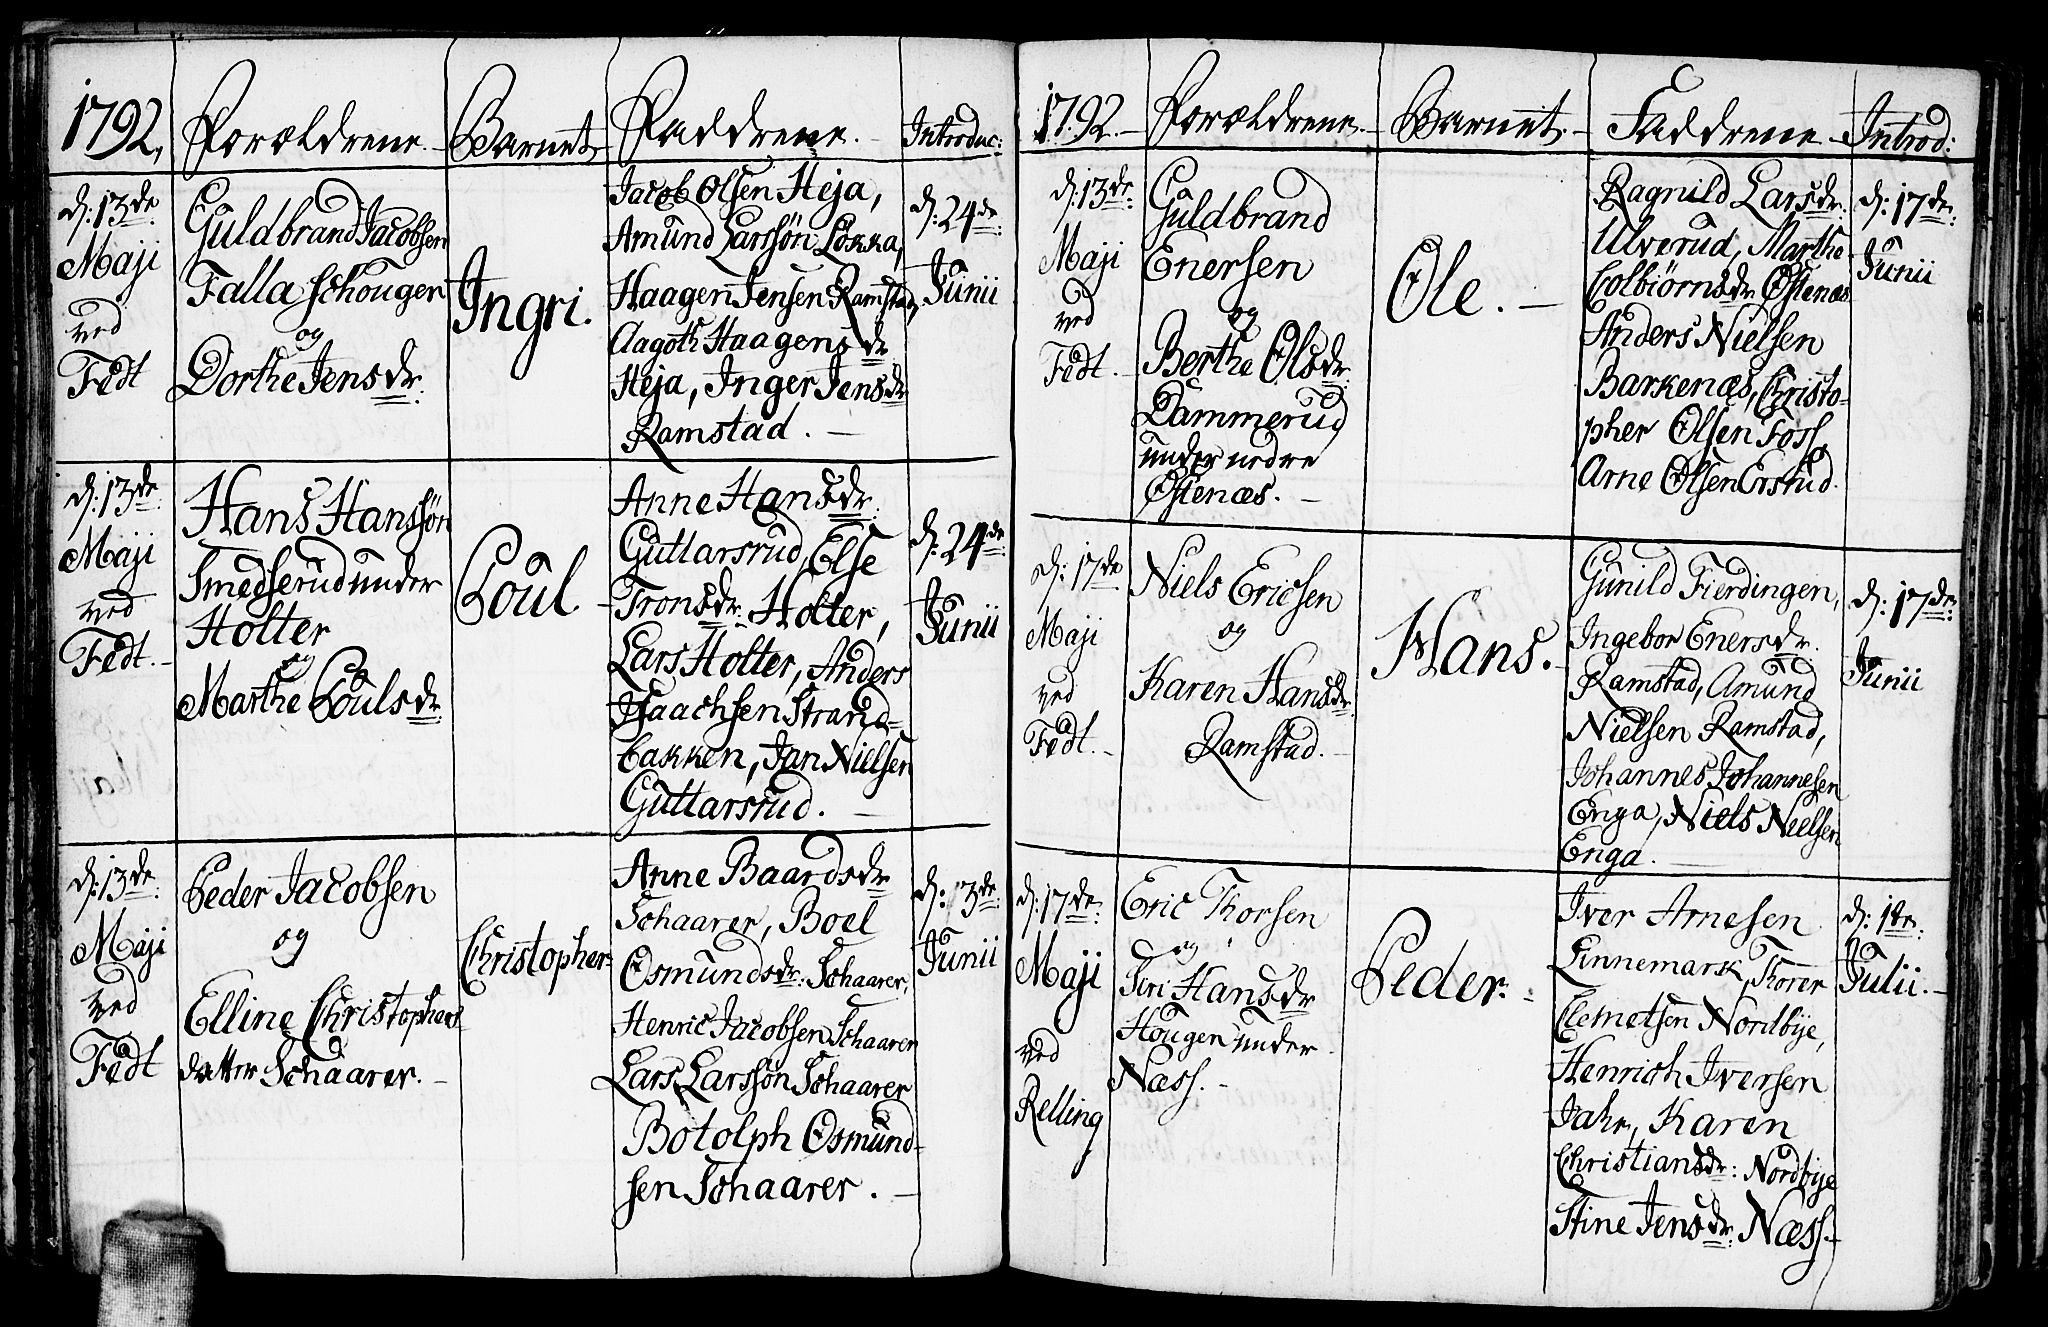 1792, Forældrene. Barnet Faddrene. Introduc:
d: 13de
Maji
ved
Fedt
Guldbrand Jacobsen
Falla Schougen
og
Dorthe Jensdr:
Ingri.
Jacob Olsen Heja,
Amund Larssön Løkka,
Haagen Jensen Ramstad,
Aagoth Haagensdr
Heja, Inger Jensdr
Ramstad.
d: 24de
Junii
d: 13de
Maji
ved
Fedt.
Hans Hanssøn
Smedserud under
Holter
og
Marthe Poulsdr
Poul
Anne Hansdr:
Guttarsrud, Else
Tronsdr: Holter,
Lars Holter, Anders
Isaachsen Strand-
bakken, Jan Nielsen
Guttarsrud.
d: 24de
Junii
d: 13de
Maji
ved
Fedt
Peder Jacobsen
og
Elline Christophers
datter Schaarer.
Christopher
Anne Baardsdr
Schaarer, Boel
Osmundsdr: Schaarer,
Henric Jacobsen Schaarer
Lars Larssøn Schaarer
Botolph Osmund-
sen Schaarer.
d: 13de
Junii
1792. Forældrene. Barnet. Faddrene Introd:
d: 13de
Maji
ved
Fedt.
Guldbrand
Enersen
og
Berthe Olsdr:
Dammerud
under nedre
Østenæs.
Ole.
Ragnild Larsdr:
Ulverud, Marthe
Colbiørnsdr Østenæs
Anders Nielsen
Barkenæs, Christo-
pher Olsen Foss,
Arne Olsen Erstud.
d: 17de
Junii
d: 17de
Maji
ved
Fedt.
Niels Ericsen
og
Karen Hansdr:
Ramstad.
Hans.
Gunild Fierdingen,
Ingebor Enersdr:
Ramstad, Amund
Nielsen Ramstad,
Johannes Johannesen
Enga, Niels Nielsen
Enga.
d: 17de
Junii
d: 17de
Maji
ved
Relling
Eric Thorsen
og
Siri Hansdr
Hougen under
Næss.
Peder.
Iver Arnesen
Linnemark, Thorer
Clemetsen Nordbye,
Henrich Iversen
Jahr, Karen
Christiansdr: Nordbye
Stine Jensdr: Næss.
d: 1te
Julii.